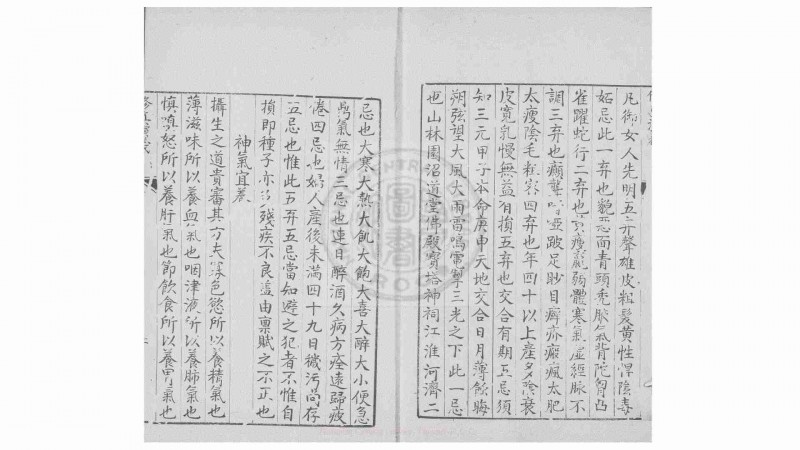 凡御女人先明五弃聲雄皮粗髮黃性悍陰毒
妬忌此一弃也貌惡面青頭禿腋氣背陀胷凸
雀躍蛇行二弃也黃瘦羸弱體寒氣虛經脉不
調三弃也癲聾啞跛足眇目癬疥癜瘋太肥
太瘦陰毛粗密四弃也年四十以上產多陰衰
皮寬乳慢無益有損五弃也交合有期五忌須
知三元甲子本命庚申天地交合日月薄飲晦
朔弦望大風大雨雷鳴電擊三光之下此一忌
也山林園沼道堂佛殿寶塔神祠江淮河濟二
忌也大寒大熱大飢大飽大喜大醉大小便急
氣無情三忌也連日醉酒久病方痊遠歸疲
倦四忌也婦人產後未滿四十九日穢污尚存
五忌也惟此五弃五忌當知避之犯者不惟自
損即種子亦多殘疾不良蓋由禀賦之不正也
神氣宜養
攝生之道貴審其方夫寡色慾所以養精氣也
薄滋味所以養血氣也咽津液所以養肺氣也
慎嗔怒所以養肝氣也節飲食所以養胃氣也